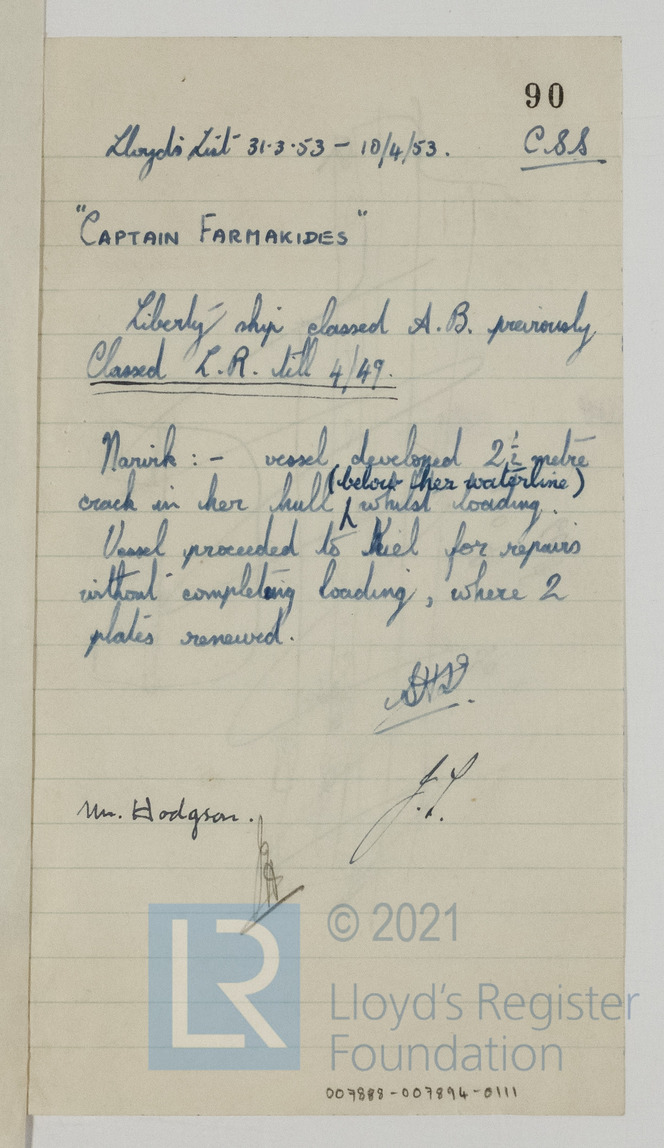 90
Lloyd's List 31·3·53 - 10/4/53. C.S.S
"CAPTAIN FARMAKIDES"
Liberty ship classed A.B. previously
Classed L.R. till 4/49.
Narvik :- vessel developed 2½ metre
(below her waterline)
crack in her hull whilst loading.
Vessel proceeded to Kiel for repairs
without completing loading, where 2
plates renewed.
Mr. Hodgson.
LR
© 2021
Lloyd's Register
Foundation
007888-007894-0111